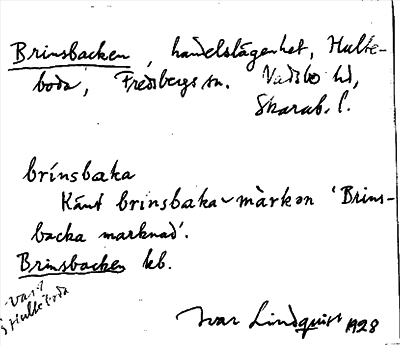 Brinsbacken, handelslägenhet, Hulte-
boda, Fredsbergs sn. Vadsbo hd,
Skarab. l.
brínsbaka
Känt brinsbaka-màrkən 'Brins-
backa marknad'.
Brinsbacken kb.
var?
Hulteboda
Ivar Lindquist 1928